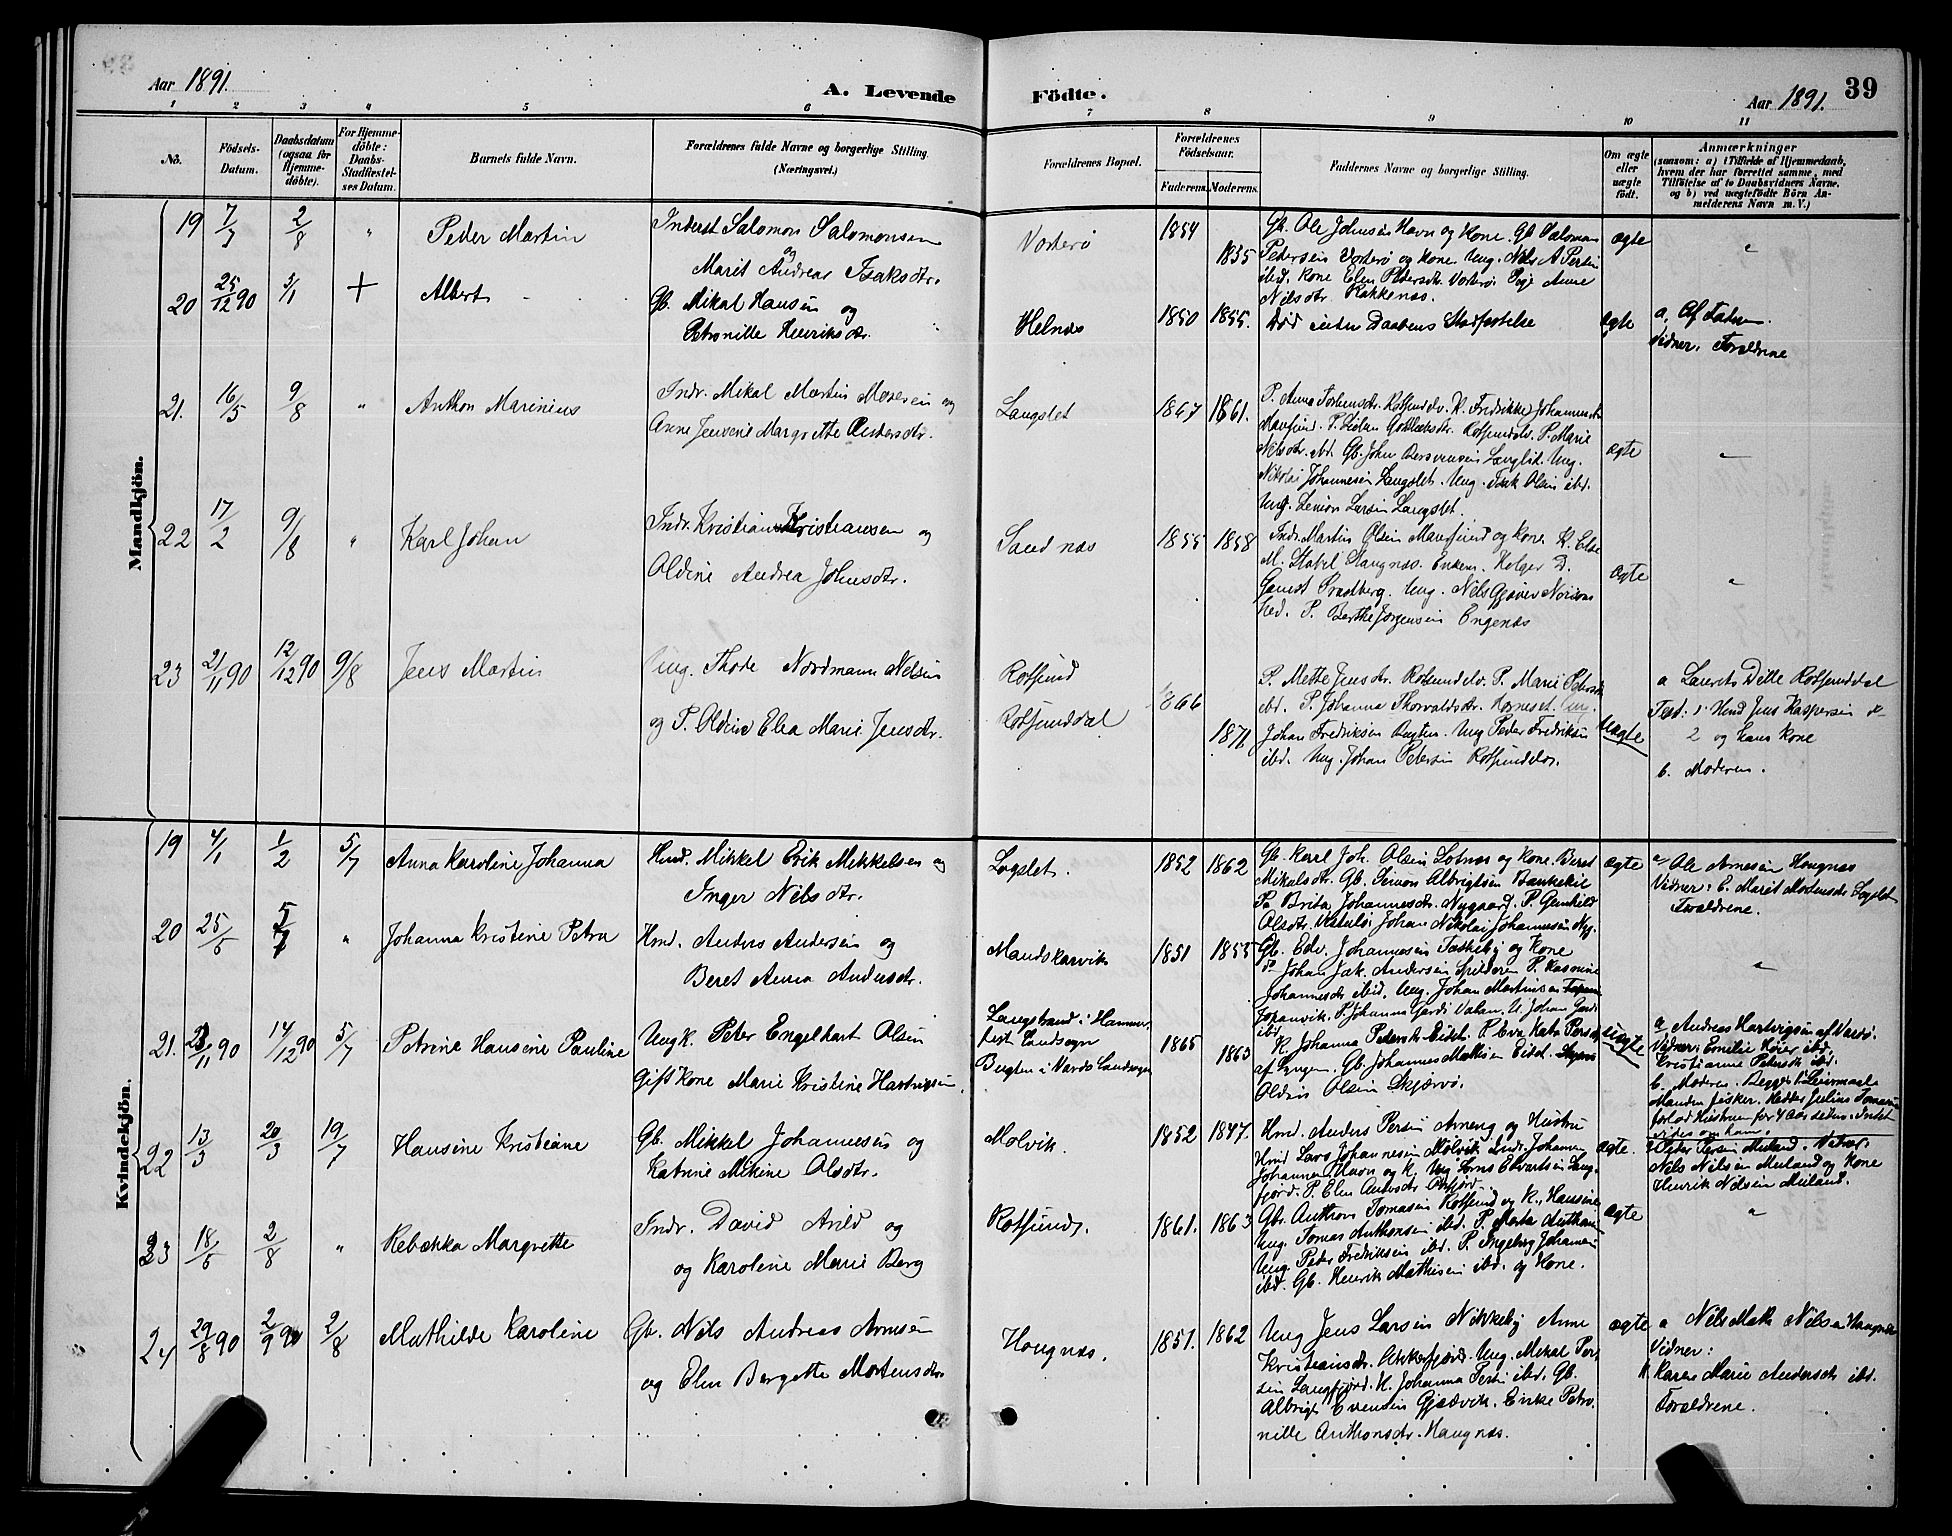 Aar 1891.
A. Levende
Födte.
Aar 1891.
39
1 2 3 4 5 6 7 8 9 10 11
No.
Födsels-Datum.
Daabsdatum (ogsaa for Hjemme-döbte).
For Hjemme-döbte: Daabs-Stadfæstel-ses Datum.
Barnets fulde Navn.
Forældrenes fulde Navne og borgerlige Stilling. (Næringsvei.)
Forældrenes Bopæl.
Forældrenes Födselsaar.
Faderens. Moderens.
Faddernes Navne og borgerlige Stilling.
Om ægte eller uægte födt.
Anmærkninger
(saasom: a) i Tilfælde af Hjemmedaab,
hvem der har forrettet samme, med
Tilföielse af to Daabsvidners Navne,
og b) ved uægtefödte Börn An-
melderens Navn m. V.)
Mandkjön.
19 7/7 2/8 " Peder Martin
Inderst Salomon Salomonsen
og
Marit Andrea Isaksdtr.
Vorterö 1854 1855
Gb. Ole Johnsen Havn og Kone. Gb Salomon
Petersen Vorterö og Kone. Ung. Nils A
ibid. Kone Elen Pedersdtr Vorterö. Pige Anne
Nilsdtr. Kakkenæs.
ægte "
20 25/12 90 3/1 + Albert
Gb. Mikal Hansen
og
Petronille Henriksdtr.
Helnæs 1850 1855.
Död inden Daabens Stadfæstelse
ægte
a, Af
Vidner, Forældrene
21. 16/5 9/8 " Anthon Marinius
Indr. Mikal Martin og
Anne Jensine Margrethe Andersdtr.
Langslet 1867 1861.
P. Anna K. Fredrikke Johannesdtr
P. Marie
Nilsdtr. ibd. Gb. John Langslet. Ung.
Nikolai Johannesen Langslet. Ung. Isak Olsen ibd.
Ung. Simon Larsen Langslet.
ægte "
22 17/2 9/8 " Karl Johan
Indr. Kristian Kristiansen og
Aldine Andrea Johnsdtr.
Sandnæs 1855 1858
Indr. Martin Olsen og Kone. K. Else
M. Stabel Haugnæs. Enkem. Holger D.
Ung. Nils
P. Berthe Jörgensen Engenæs
ægte "
23 21/11 90 12/12 90 9/8 Jens Martin
Ung. Thode Nordmann Nelsen
og P. Aldine Elea Marie Jensdtr.
Rotsund
Rotsunddal
1866 1871
P. Mette Jensdtr. Rotsundelv. P. Marie Petersdtr
ibd. P. Johanna Thorvaldsdtr. Ung.
Johan Fredriksen Bugten. Ung Peder Fredriksen
ibd. Ung. Johan Petersen Rotsundelv.
Uægte
a Laurits Dille Rotsunddal
Test: 1 Hmd Jens Kaspersen
2 og hans Kone
b. Moderen.
Kvindekjön.
19 4/1 1/2 5/7 Anna Karoline Johanna
Hmd. Mikkel Erik Mikkelsen og
Inger Nilsdtr.
Logslet. 1852 1862
Gb. Karl Joh. Olsen Lotnæs og Kone. Beret
Mikalsdtr. Gb. Simon Albrigtsen Bankekil
P. Brita Johannesdtr. Nygaard. P. Gunhild
Olsdtr. Johan Nikolai Johannesen Nyg.
ægte
a Ole Arnesen Haugnæs
Vidner: E. Marit Mortensdtr Logslet
Forældrene.
20 25/5 5/7 " Johanna Kristine Petra
Hmd. Anders Andersen og
Beret Anna Andersdtr.
Mandskarvik 1851 1855
Gb. Edv. Johannesen Taskeby og Kone
Johan Jak. Andersen Spilderen P.
Johannesdtr ibid. Ung. Johan Martinsen
P. Johanna Valan. U. Johan
ibd
"
21. 23/11 90 14/12 90 5/7 Petrine Hansine Pauline
Ungk. Peter Engelhart Olsen
Gift Kone Marie Kristine Hartvigsen.
Langstrand i Hammer-
fest Landsogn
Bugten i Vardö Landsogn
1865 1863
K. Johanna Petersdtr Eidet. P. Eva Kata
af Lyngen. Gb. Johannes Mathisen Eidet.
Olsen Skjærvö.
uægte
a Andreas Hartvigsen af Vardö.
Vidner: Emilie Höier ibd.
Kristianne ibd.
b. Moderen. Begges 1 Leiermaal.
Manden fisker. Hedder Julius
forlod Hustruen for 4 Aar siden. Intet
vides om ham.
22 13/3 20/3 19/7 Hansine Kristiane
Gb. Mikkel Johannesen og
Katrine Mikine Olsdtr.
Molvik. 1852 1847.
Hmd. Anders Persen Arneng og Hustru
Hmd Lars Johannesen Molvik Indr. Johannes
Johannes Havn og K. Ung Edvardsen Lang-
fjord. P. Elen Andersdtr
ægte.
Peder Persen Meiland. Vidner:
Nils Nilsen Meiland og Kone
Henrik Nilsen Meiland.
23 18/5 2/8 " Rebekka Margrette
Indr. David Arild og
og Karoline Marie Berg
Rotsund. 1861. 1863
Gbr. Anthon Tomasen Rotsund og K. Hansine
Ung. Tomas Anthonsen ibd. P. Marta
Ung. Peder Fredriksen ibd. P. Ingeborg
ibd. Gb. Henrik Mathisen ibd. og Kone.
ægte "
24 29/8 90 2/9 90 2/8 Mathilde Karoline
Gb. Nils Andreas Arnesen
og Elen Bergette Mortensdtr.
Haugnæs. 1851. 1862
Ung Jens Larsen Nikkeby Anne
Kristiansdtr. Akkarfjord. Ung. Mikal Per-
sen Langfjord. K. Johanna ibd. Gb.
Albrigt Evensen Gjævik. Enke Petro-
nille Anthonsdtr. Haugnæs.
ægte
a Nils Mats Nilsen Haugnæs
Vidner:
K. Karen Marie Andersdtr ibd.
Forældrene.